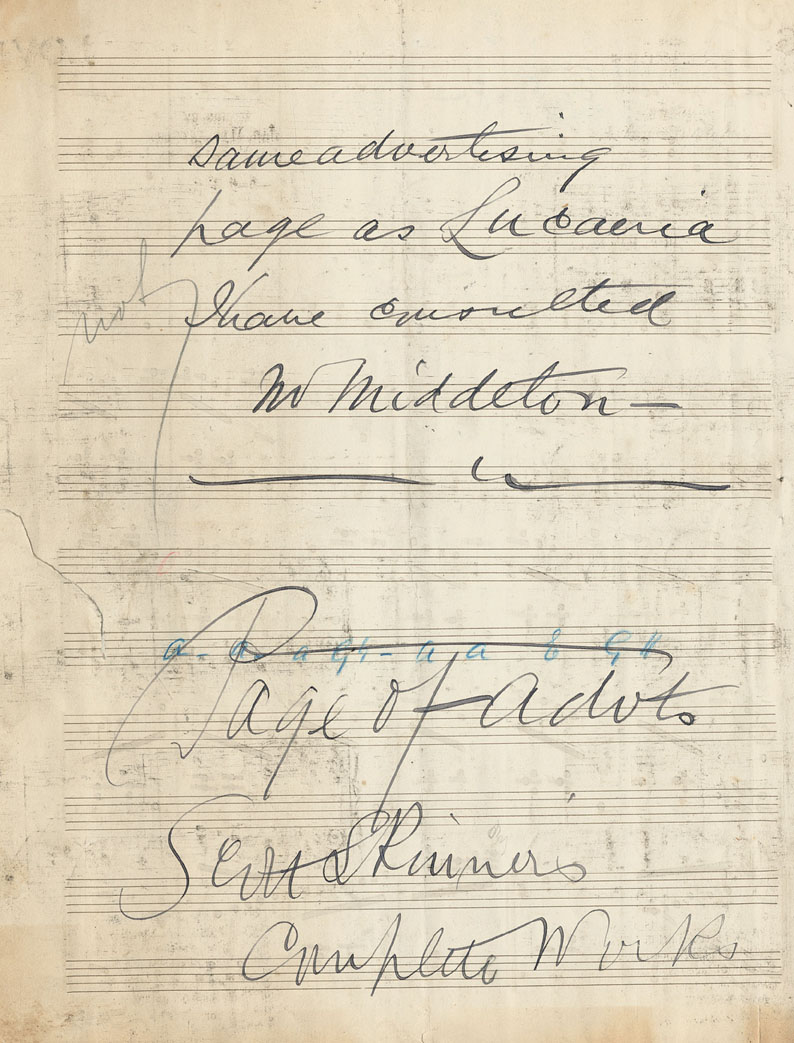 same advertising
page as Lucania
I have consulted
Mr Middleton —
not
a - a a G# - a a E G#
Page of Advts
Scott Skinner's
Complete Works